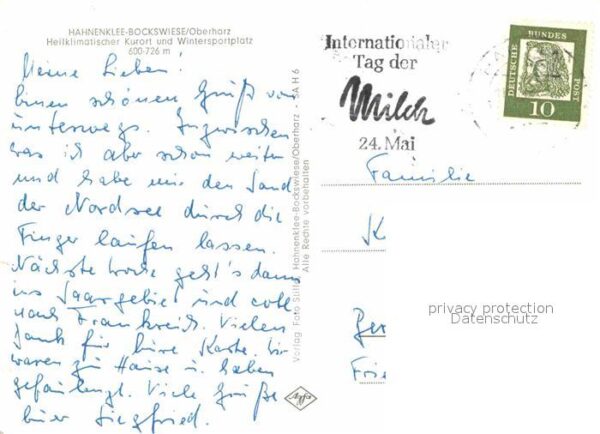 HAHNENKLEE-BOCKSWIESE/Oberharz
Heilklimatischer Kurort und Wintersportplatz
600-726 m
Meine Lieben!
einen schönen Gruß von
unterwegs. Inzwischen
war ich aber schon weiter
und habe mir den Sand
der Nordsee durch die
Finger laufen lassen.
Nächste Woche geht's dann
ins Saargebiet und evtl.
nach Frankreich. Vielen
Dank für Eure Karte. Wir
waren zu Hause u. haben
gefaulenzt. Viele Grüße
Euer Siegfried.
Verlag Foto Hahnenklee-Bockswiese/Oberharz - SA H 6
Alle Rechte vorbehalten
Agfa
Internationaler
Tag der
Milch
24. Mai
DEUTSCHE BUNDES POST
10
Familie
K
Ber
Frie
privacy protection
Datenschutz